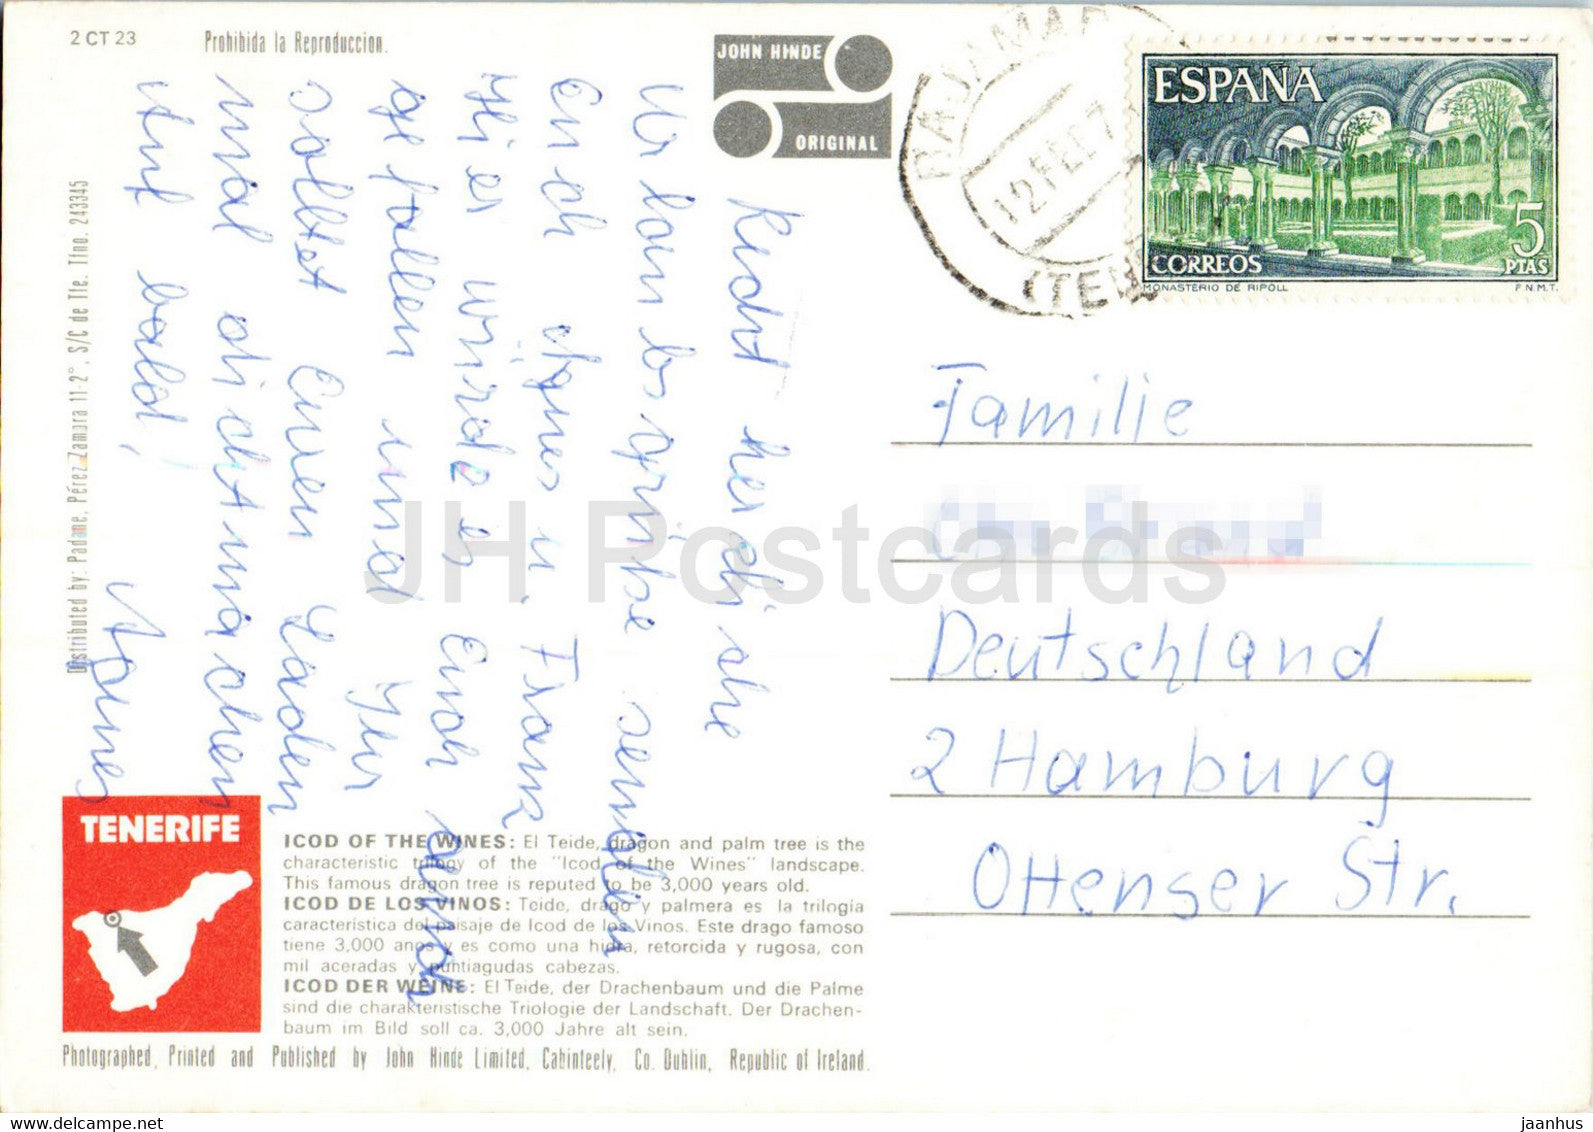 2 CT 23
Prohibida la Reproduccion.
JOHN HINDE
ORIGINAL
BAJAMAR
12 FEB 7
(TEN
ESPAÑA
5
PTAS
CORREOS
MONASTERIO DE RIPOLL
F.N.M.T.
Recht herzliche
Urlaubsgrüße senden
Euch Agnes u. Franz
Hier würde es Euch auch
gefallen und Ihr
solltet Euren Laden
mal dichtmachen
Auf bald!
Agnes
Familie
Deutschland
2 Hamburg
Ottenser Str.
Distributed by: Padane, Pérez Zamora 11-2°, S/C de Tfe. Tfno. 243345
JH Postcards
TENERIFE
ICOD OF THE WINES: El Teide, dragon and palm tree is the
characteristic trilogy of the "Icod of the Wines" landscape.
This famous dragon tree is reputed to be 3,000 years old.
ICOD DE LOS VINOS: Teide, drago y palmera es la trilogia
característica del paisaje de Icod de los Vinos. Este drago famoso
tiene 3,000 anos y es como una hidra, retorcida y rugosa, con
mil aceradas y puntiagudas cabezas.
ICOD DER WEINE: El Teide, der Drachenbaum und die Palme
sind die charakteristische Triologie der Landschaft. Der Drachen-
baum im Bild soll ca. 3,000 Jahre alt sein.
Photographed, Printed and Published by John Hinde Limited, Cabinteely, Co. Dublin, Republic of Ireland.
www.delcampe.net
jaanhus